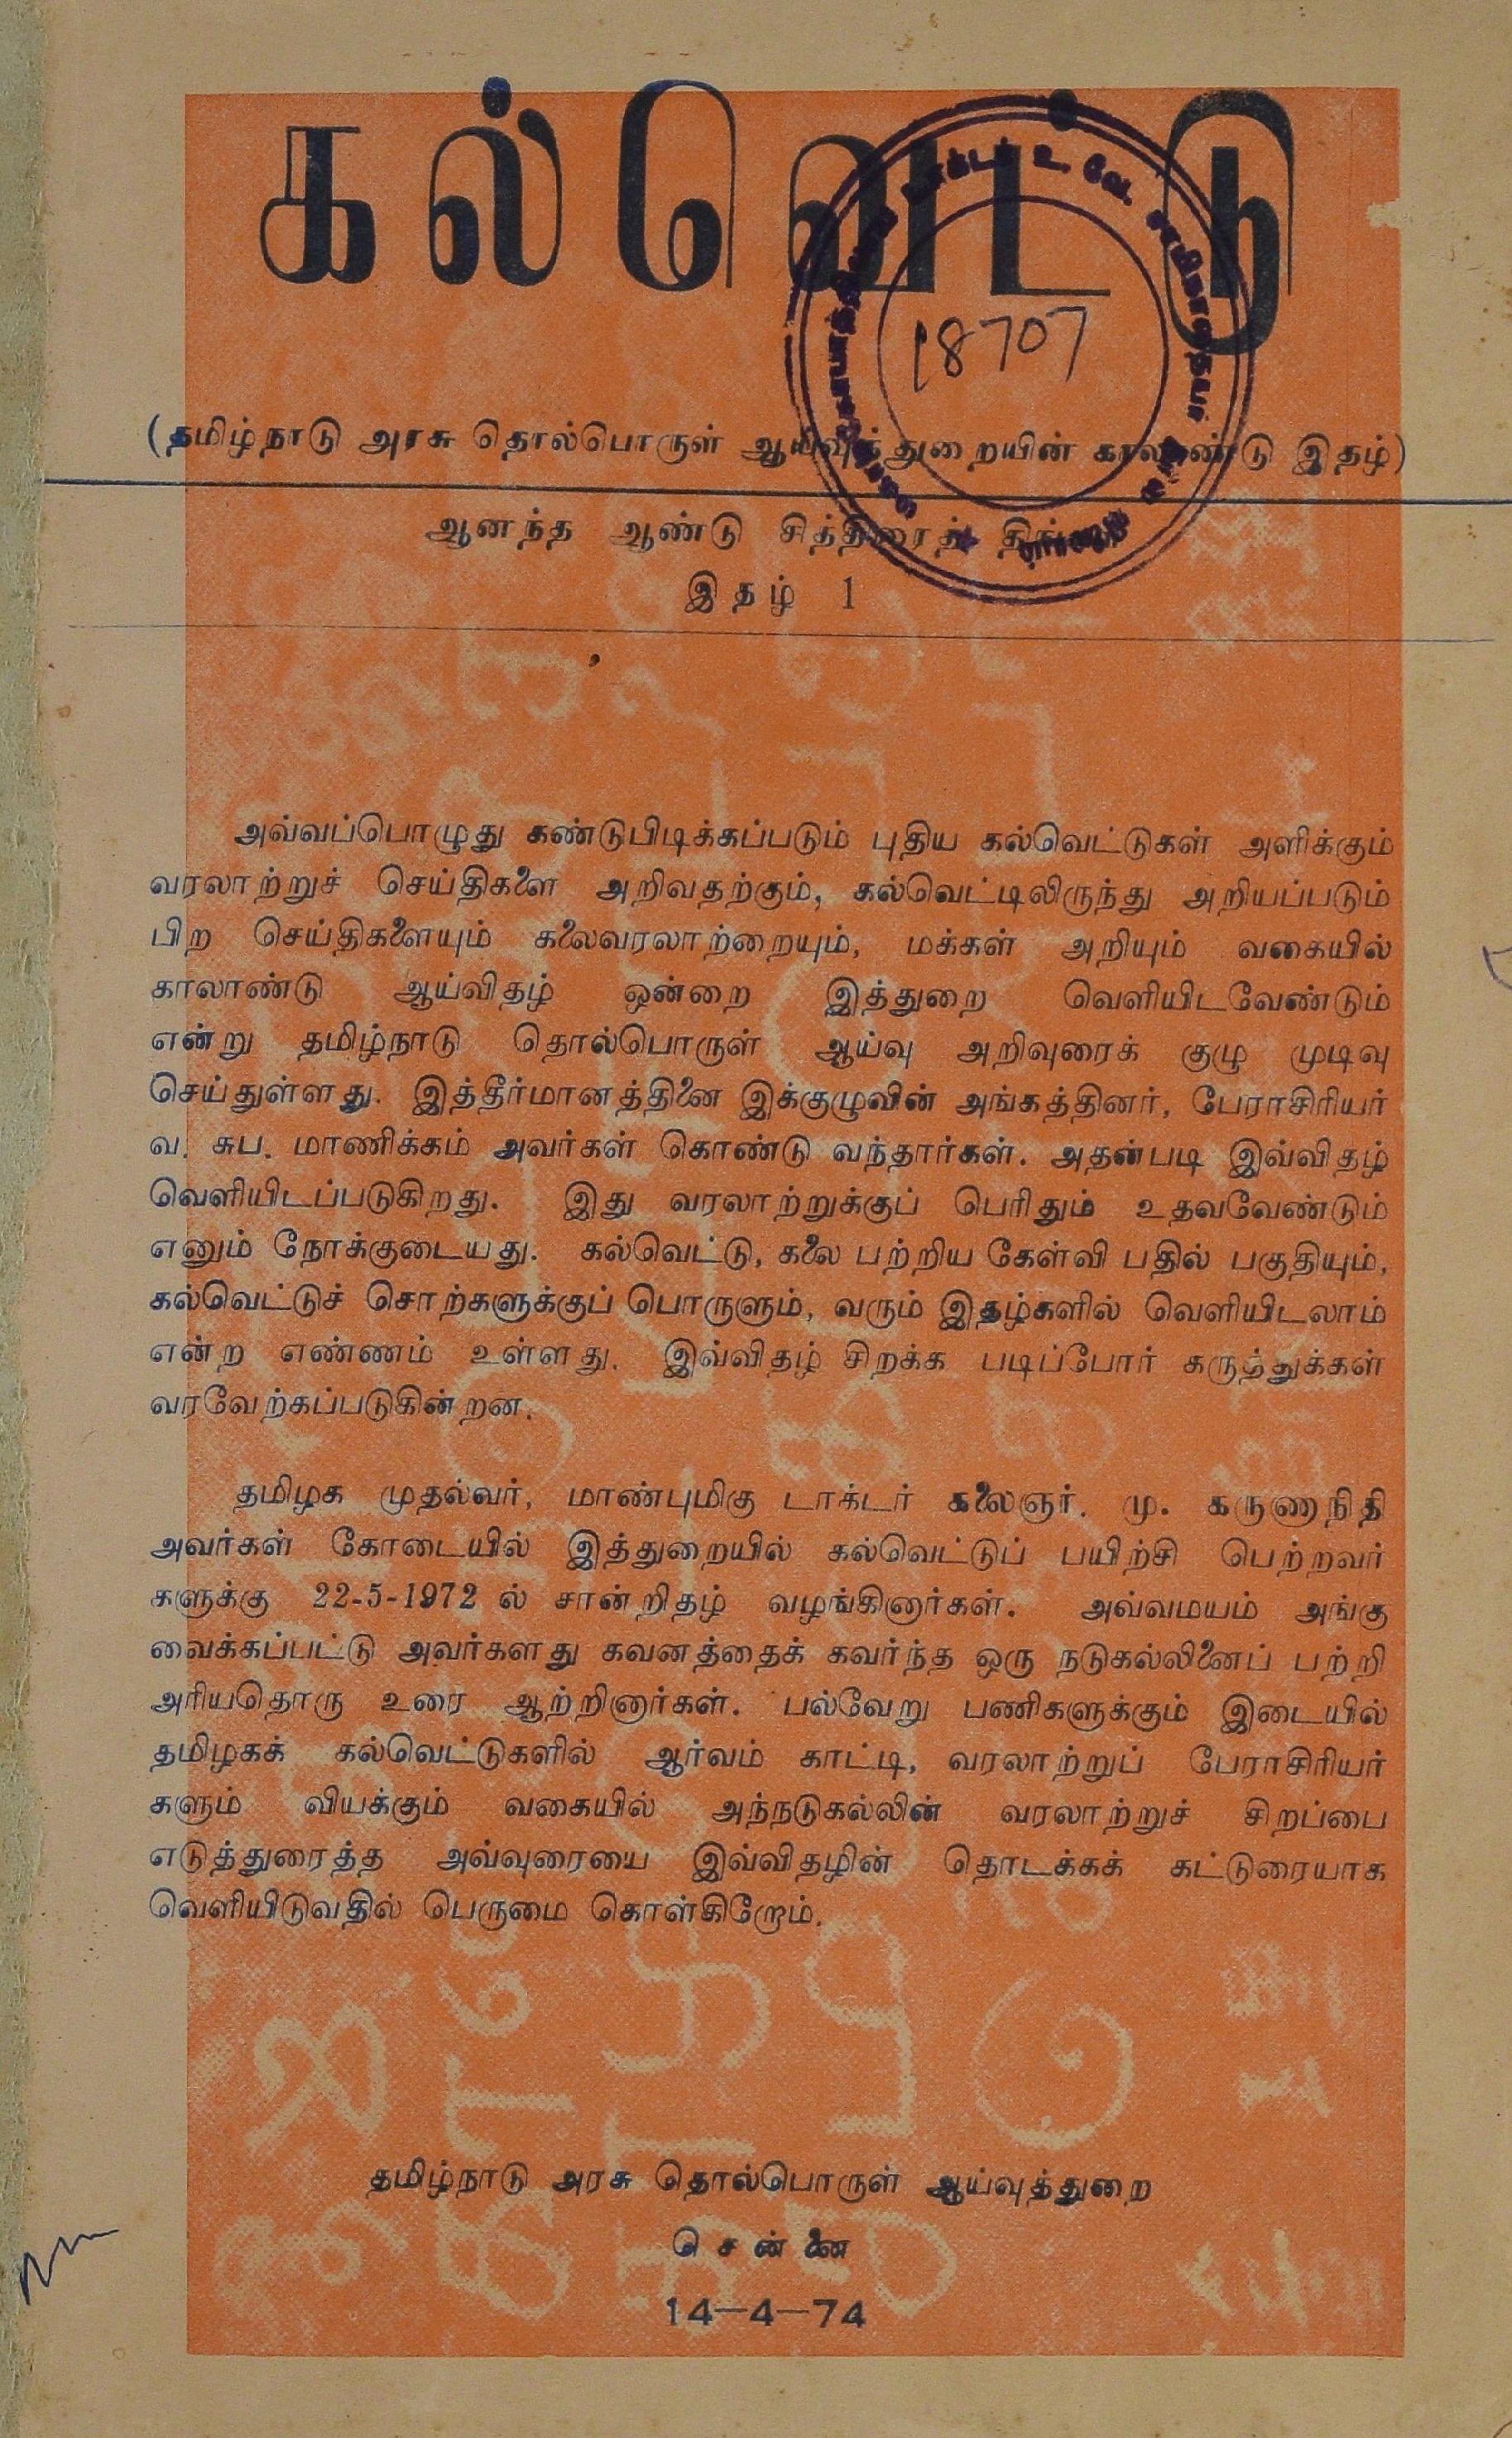 கல்வெட்டு
18707
(தமிழ்நாடு அரசு தொல்பொருள் ஆய்வுத்துறையின் காலாண்டு இதழ்)
ஆனந்த ஆண்டு சித்திரைத்
இதழ் 1
அவ்வப்பொழுது கண்டுபிடிக்கப்படும் புதிய கல்வெட்டுகள் அளிக்கும்
வரலாற்றுச் செய்திகளை அறிவதற்கும், கல்வெட்டிலிருந்து அறியப்படும்
பிற செய்திகளையும் கலைவரலாற்றையும், மக்கள் அறியும் வகையில்
காலாண்டு ஆய்விதழ் ஒன்றை இத்துறை வெளியிடவேண்டும்
என்று தமிழ்நாடு தொல்பொருள் ஆய்வு அறிவுரைக் குழு முடிவு
செய்துள்ளது. இத்தீர்மானத்தினை இக்குழுவின் அங்கத்தினர், பேராசிரியர்
வ. சுப. மாணிக்கம் அவர்கள் கொண்டு வந்தார்கள். அதன்படி இவ்விதழ்
வெளியிடப்படுகிறது. இது வரலாற்றுக்குப் பெரிதும் உதவவேண்டும்
எனும் நோக்குடையது. கல்வெட்டு, கலை பற்றிய கேள்வி பதில் பகுதியும்,
கல்வெட்டுச் சொற்களுக்குப் பொருளும், வரும் இதழ்களில் வெளியிடலாம்
என்ற எண்ணம் உள்ளது. இவ்விதழ் சிறக்க படிப்போர் கருத்துக்கள்
வரவேற்கப்படுகின்றன.
தமிழக முதல்வர், மாண்புமிகு டாக்டர் கலைஞர். மு. கருணாநிதி
அவர்கள் கோடையில் இத்துறையில் கல்வெட்டுப் பயிற்சி பெற்றவர்
களுக்கு 22-5-1972 ல் சான்றிதழ் வழங்கினார்கள். அவ்வமயம் அங்கு
வைக்கப்பட்டு அவர்களது கவனத்தைக் கவர்ந்த ஒரு நடுகல்லினைப் பற்றி
அரியதொரு உரை ஆற்றினார்கள். பல்வேறு பணிகளுக்கும் இடையில்
தமிழகக் கல்வெட்டுகளில் ஆர்வம் காட்டி, வரலாற்றுப் பேராசிரியர்
களும் வியக்கும் வகையில் அந்நடுகல்லின் வரலாற்றுச் சிறப்பை
எடுத்துரைத்த அவ்வுரையை இவ்விதழின் தொடக்கக் கட்டுரையாக
வெளியிடுவதில் பெருமை கொள்கிறோம்.
தமிழ்நாடு அரசு தொல்பொருள் ஆய்வுத்துறை
சென்னை
14-4-74